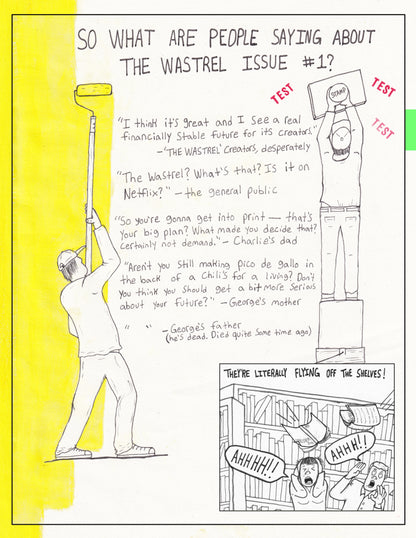 SO WHAT ARE PEOPLE SAYING ABOUT
THE WASTREL ISSUE #1?
TEST
STAMP
TEST
TEST
"I think it's great and I see a real
financially stable future for its creators."
-'THE WASTREL' Creators, desperately
"The Wastrel? What's that? Is it on
Netflix?" - the general public
"So you're gonna get into print — that's
your big plan? What made you decide that?
certainly not demand." - Charlie's dad
"Aren't you still making pico de gallo in
the back of a Chili's for a living? Don't
you think you should get a bit more serious
about your future?" - George's mother
" " - George's father
(he's dead. Died quite some time ago)
THEY'RE LITERALLY FLYING OFF THE SHELVES!
AHHHH!!
AHHH!!